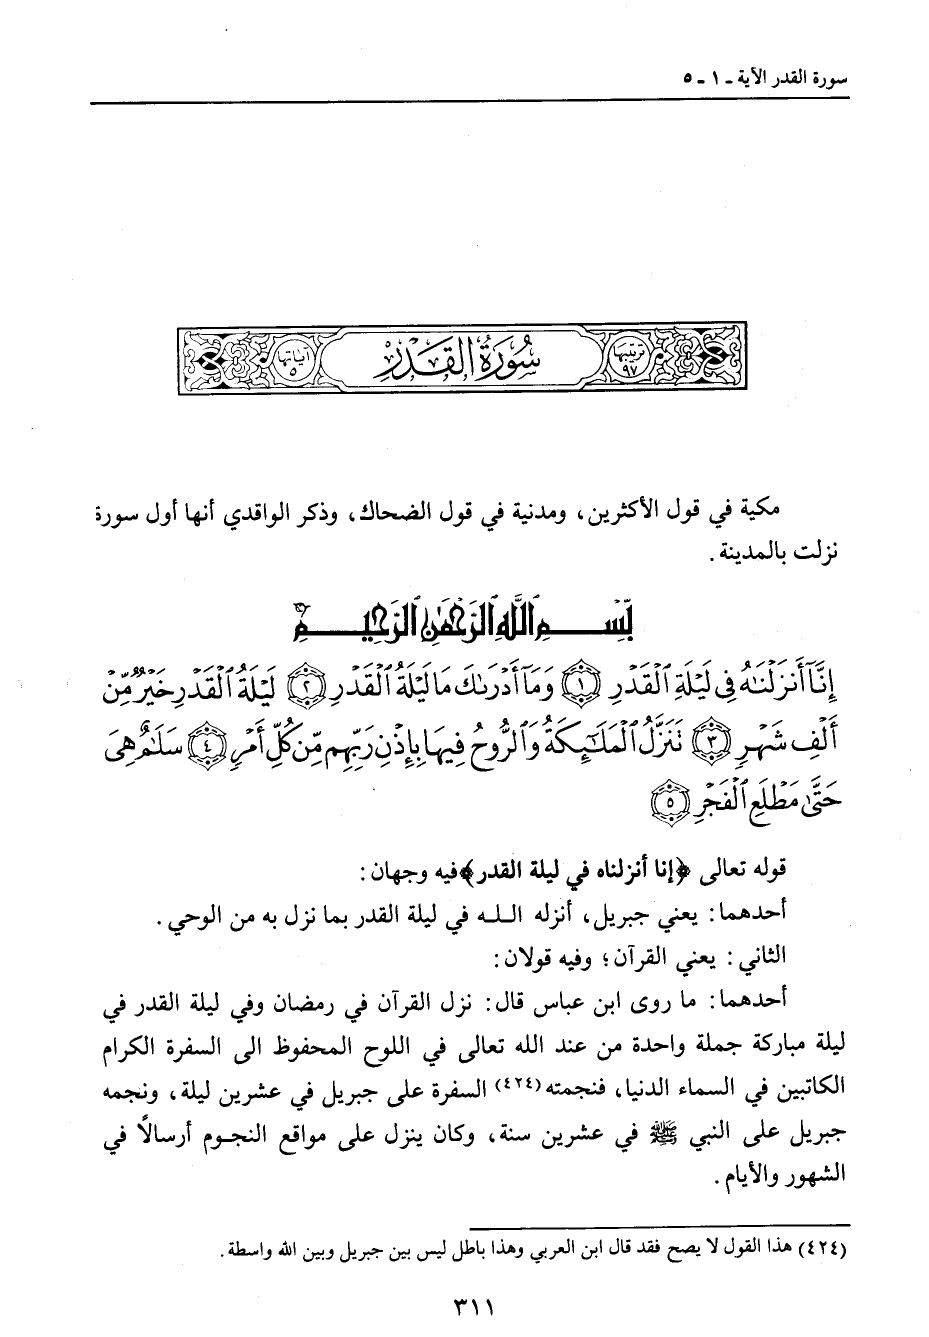 سورة القدر الآية ـ ١ ـ ٥
ترتيبها ٩٧ سُورَةُ القَدْرِ آياتها ٥
مكية في قول الأكثرين، ومدنية في قول الضحاك، وذكر الواقدي أنها أول سورة
نزلت بالمدينة.
بِسْمِ ٱللَّهِ ٱلرَّحْمَٰنِ ٱلرَّحِيمِ
إِنَّآ أَنزَلْنَٰهُ فِى لَيْلَةِ ٱلْقَدْرِ ١ وَمَآ أَدْرَىٰكَ مَا لَيْلَةُ ٱلْقَدْرِ ٢ لَيْلَةُ ٱلْقَدْرِ خَيْرٌ مِّنْ
أَلْفِ شَهْرٍ ٣ تَنَزَّلُ ٱلْمَلَٰٓئِكَةُ وَٱلرُّوحُ فِيهَا بِإِذْنِ رَبِّهِم مِّن كُلِّ أَمْرٍ ٤ سَلَٰمٌ هِىَ
حَتَّىٰ مَطْلَعِ ٱلْفَجْرِ ٥
قوله تعالى ﴿إنا أنزلناه في ليلة القدر﴾فيه وجهان:
أحدهما: يعني جبريل، أنزله الله في ليلة القدر بما نزل به من الوحي.
الثاني: يعني القرآن؛ وفيه قولان:
أحدهما: ما روى ابن عباس قال: نزل القرآن في رمضان وفي ليلة القدر في
ليلة مباركة جملة واحدة من عند الله تعالى في اللوح المحفوظ الى السفرة الكرام
الكاتبين في السماء الدنيا، فنجمته(٤٢٤) السفرة على جبريل في عشرين ليلة، ونجمه
جبريل على النبي ﷺ في عشرين سنة، وكان ينزل على مواقع النجوم أرسالاً في
الشهور والأيام.
(٤٢٤) هذا القول لا يصح فقد قال ابن العربي وهذا باطل ليس بين جبريل وبين الله واسطة.
٣١١